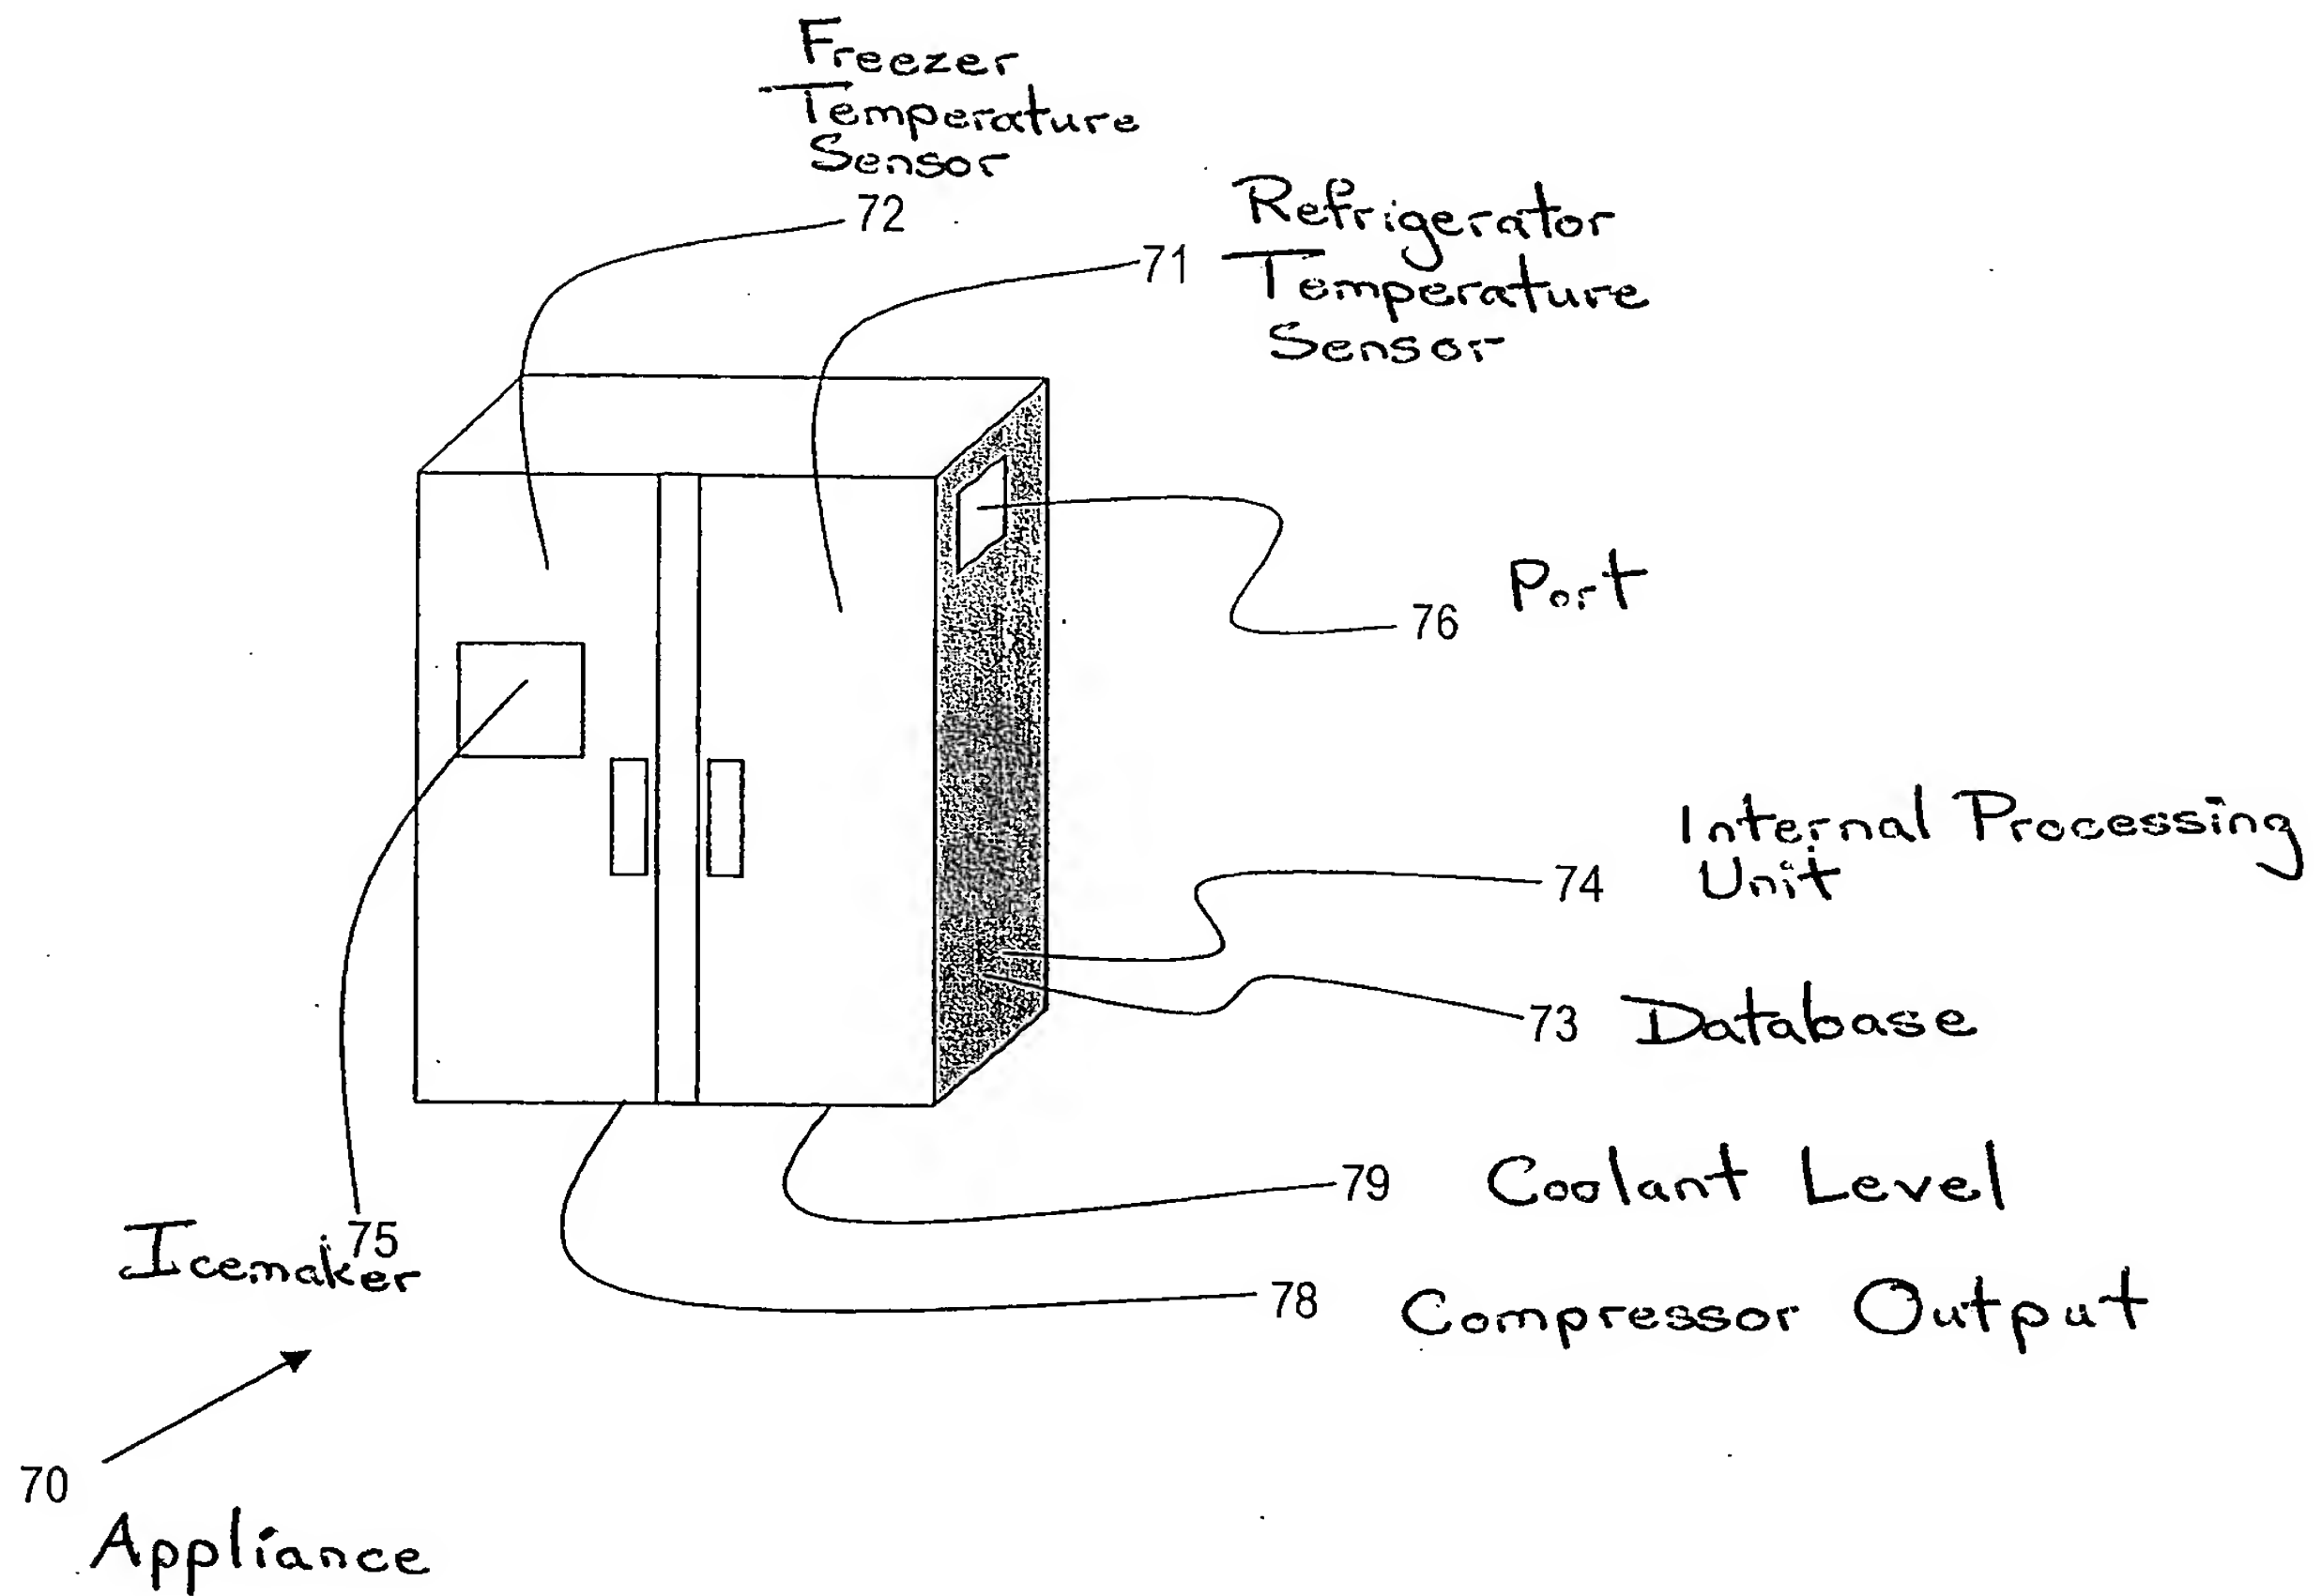 Freezer
Temperature
Sensor
72
Refrigerator
71 Temperature
Sensor
Port
76
Internal Processing
74 Unit
73 Database
79 Coolant Level
75
Icemaker
78 Compressor Output
70
Appliance